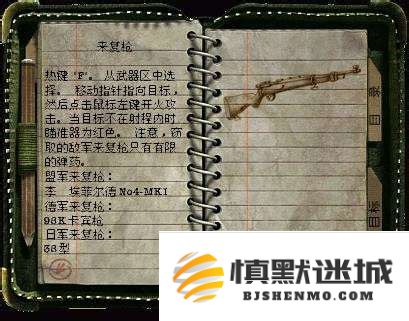 来复枪
热键 'F'。从武器区中选
择。 移动指针指向目标，
然后点击鼠标左键开火攻
击。当目标不在射程内时
瞄准器为红色。 注意，窃
取的敌军来复枪只有有限
的弹药。
盟军来复枪：
李 埃菲尔德 No4-MK1
德军来复枪：
98K卡宾枪
日军来复枪：
38型
目录
目标
慎默迷城
BJSHENMO.COM